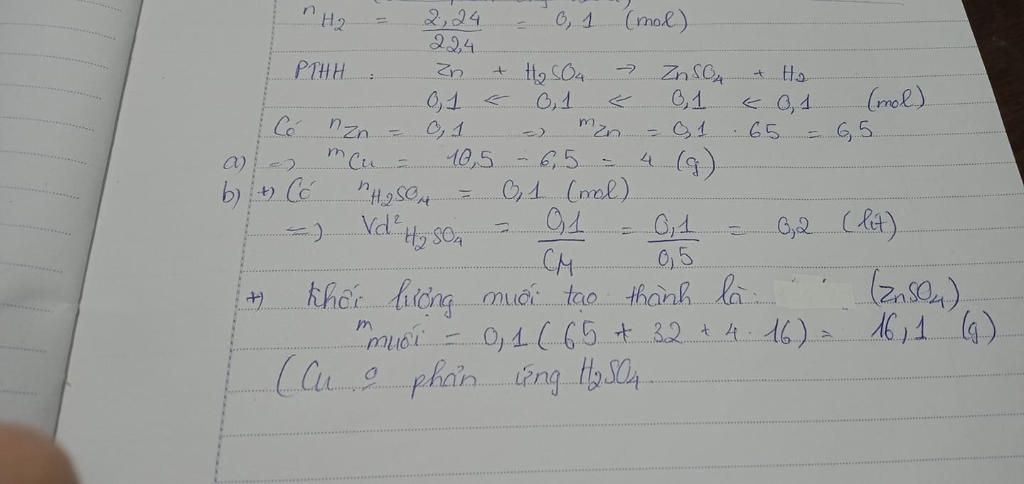 nH2 = 2,24/22,4 = 0,1 (mol)
PTHH: Zn + H2SO4 → ZnSO4 + H2
0,1 ← 0,1 ← 0,1 ← 0,1 (mol)
Có nZn = 0,1 => mZn = 0,1 . 65 = 6,5
a) => mCu = 10,5 - 6,5 = 4 (g)
b) +) Có nH2SO4 = 0,1 (mol)
=> Vd² H2SO4 = 0,1/CM = 0,1/0,5 = 0,2 (lít)
+) Khối lượng muối tạo thành là: (ZnSO4)
mmuối = 0,1 (65 + 32 + 4 . 16) = 16,1 (g)
(Cu phản ứng H2SO4